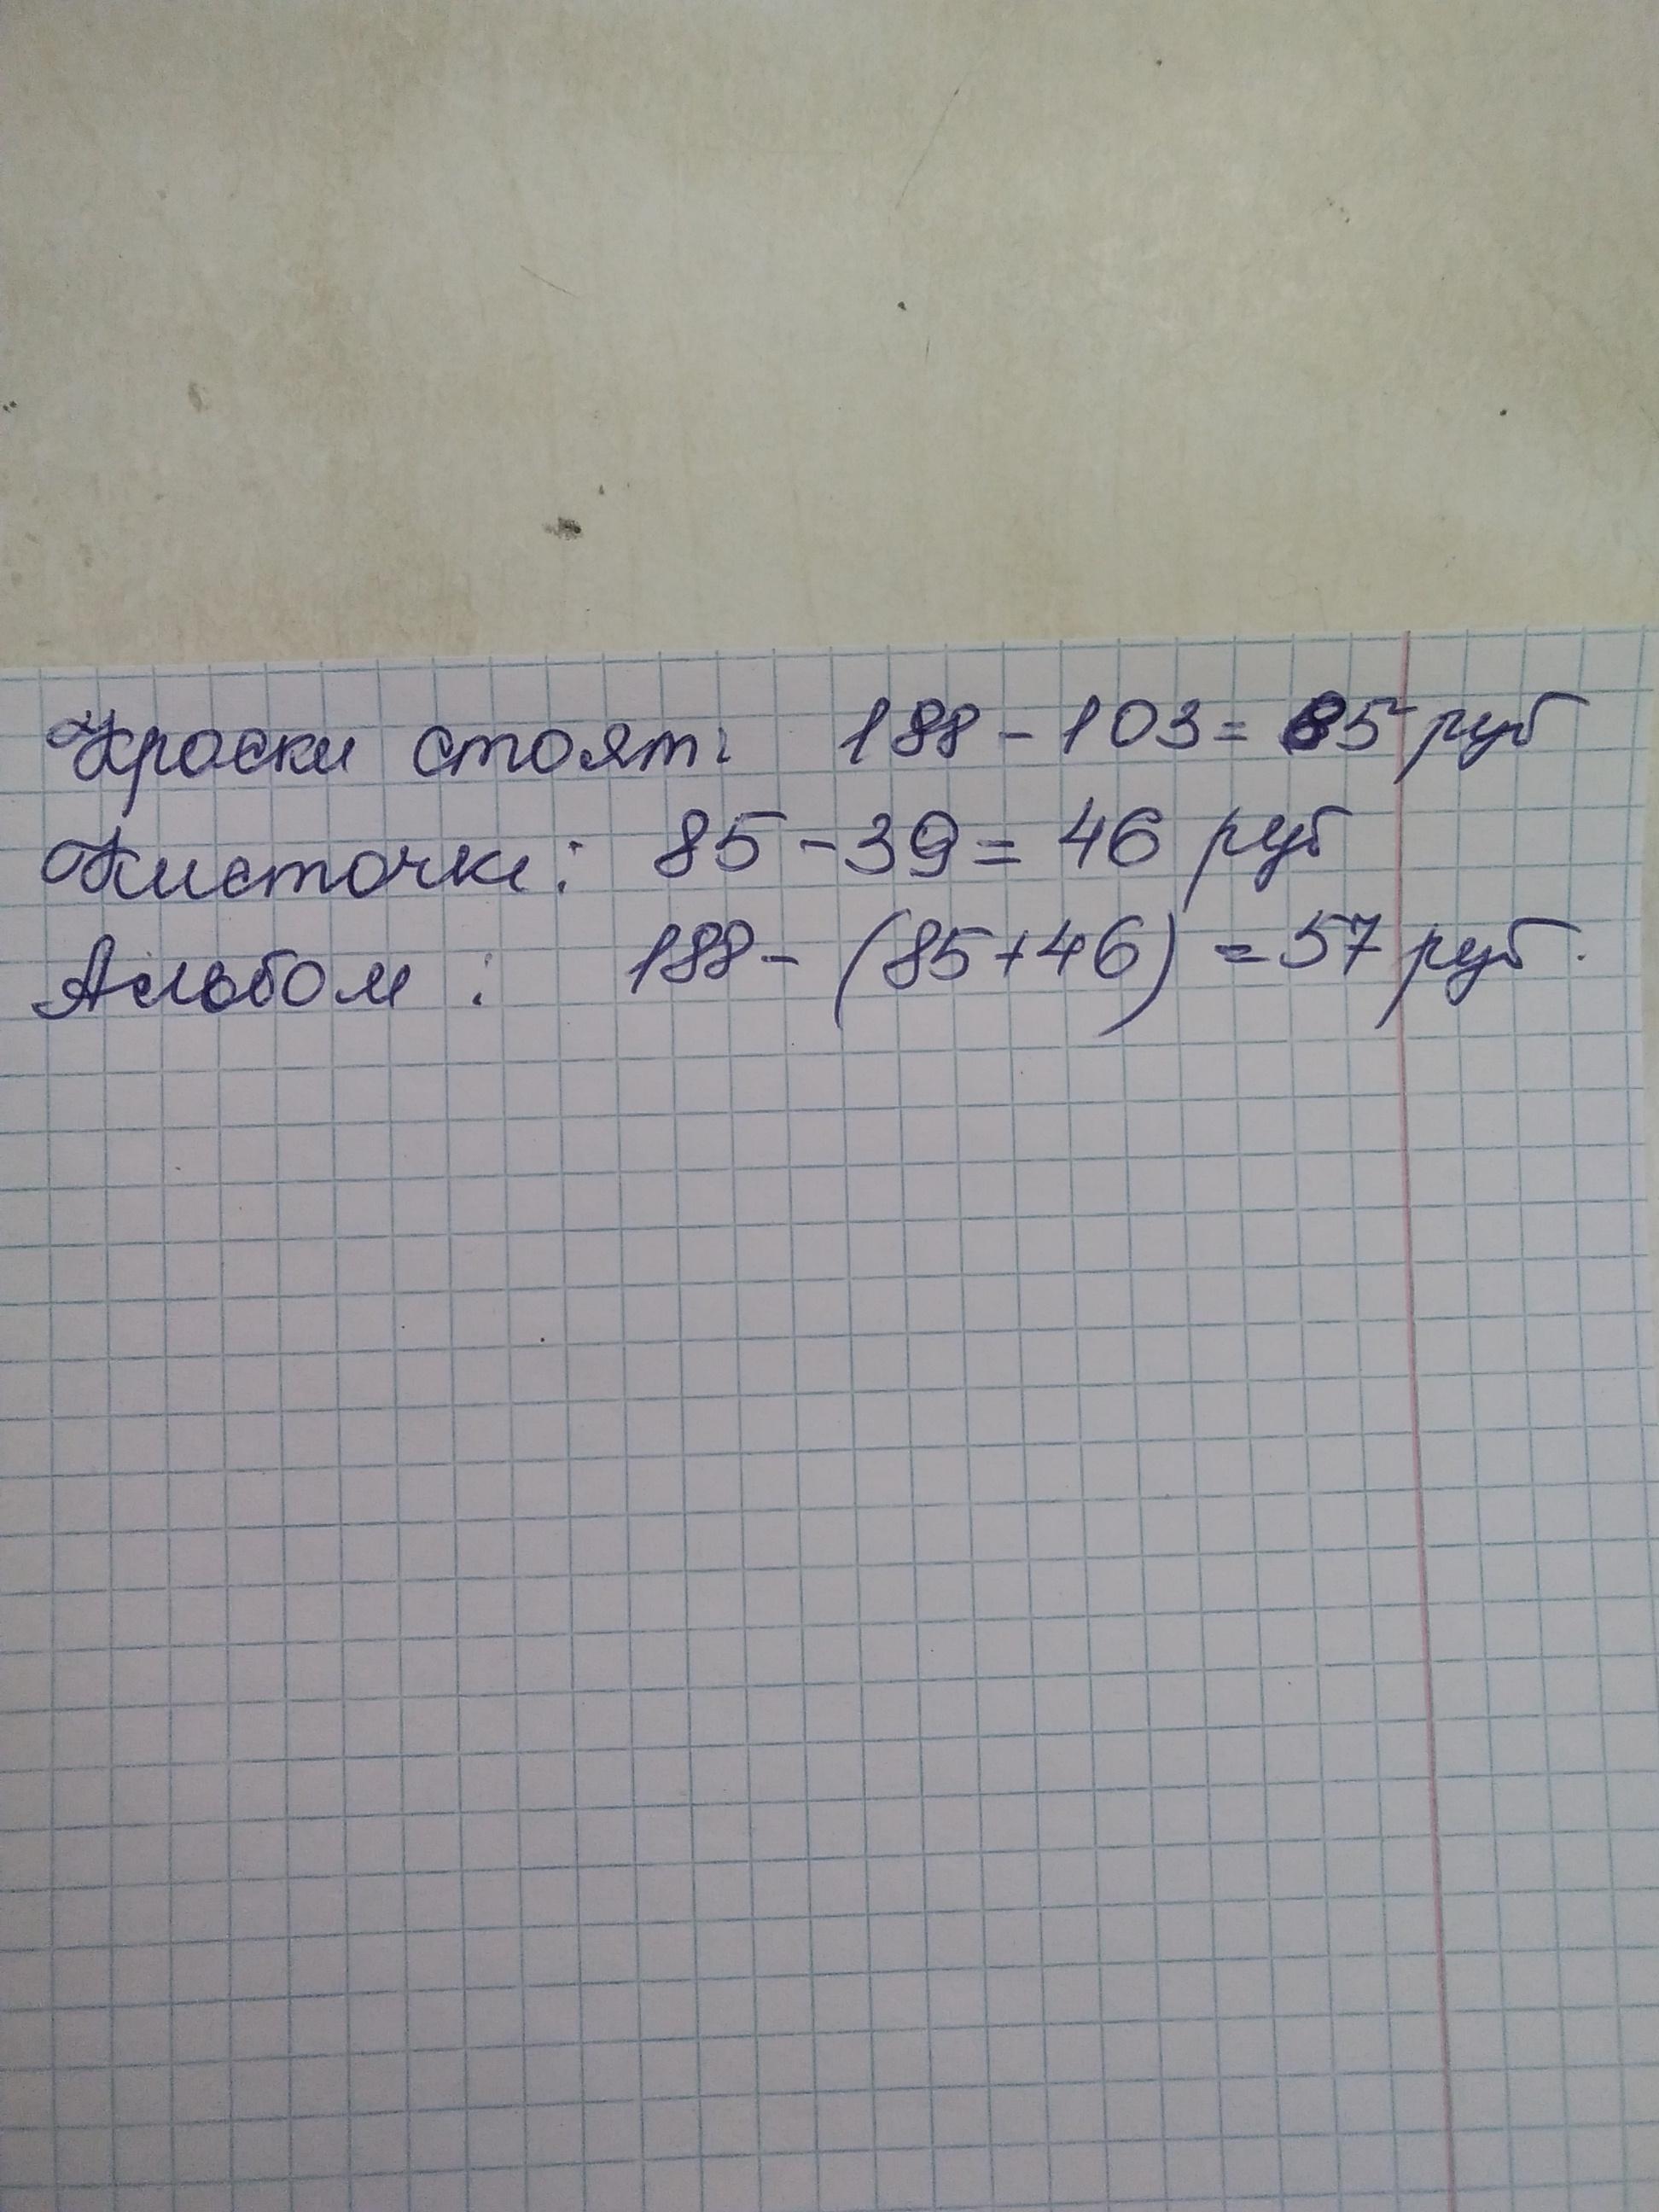 Краски стоят: 188 - 103 = 85 руб
Кисточки: 85 - 39 = 46 руб
Альбом : 188 - (85+46) = 57 руб.